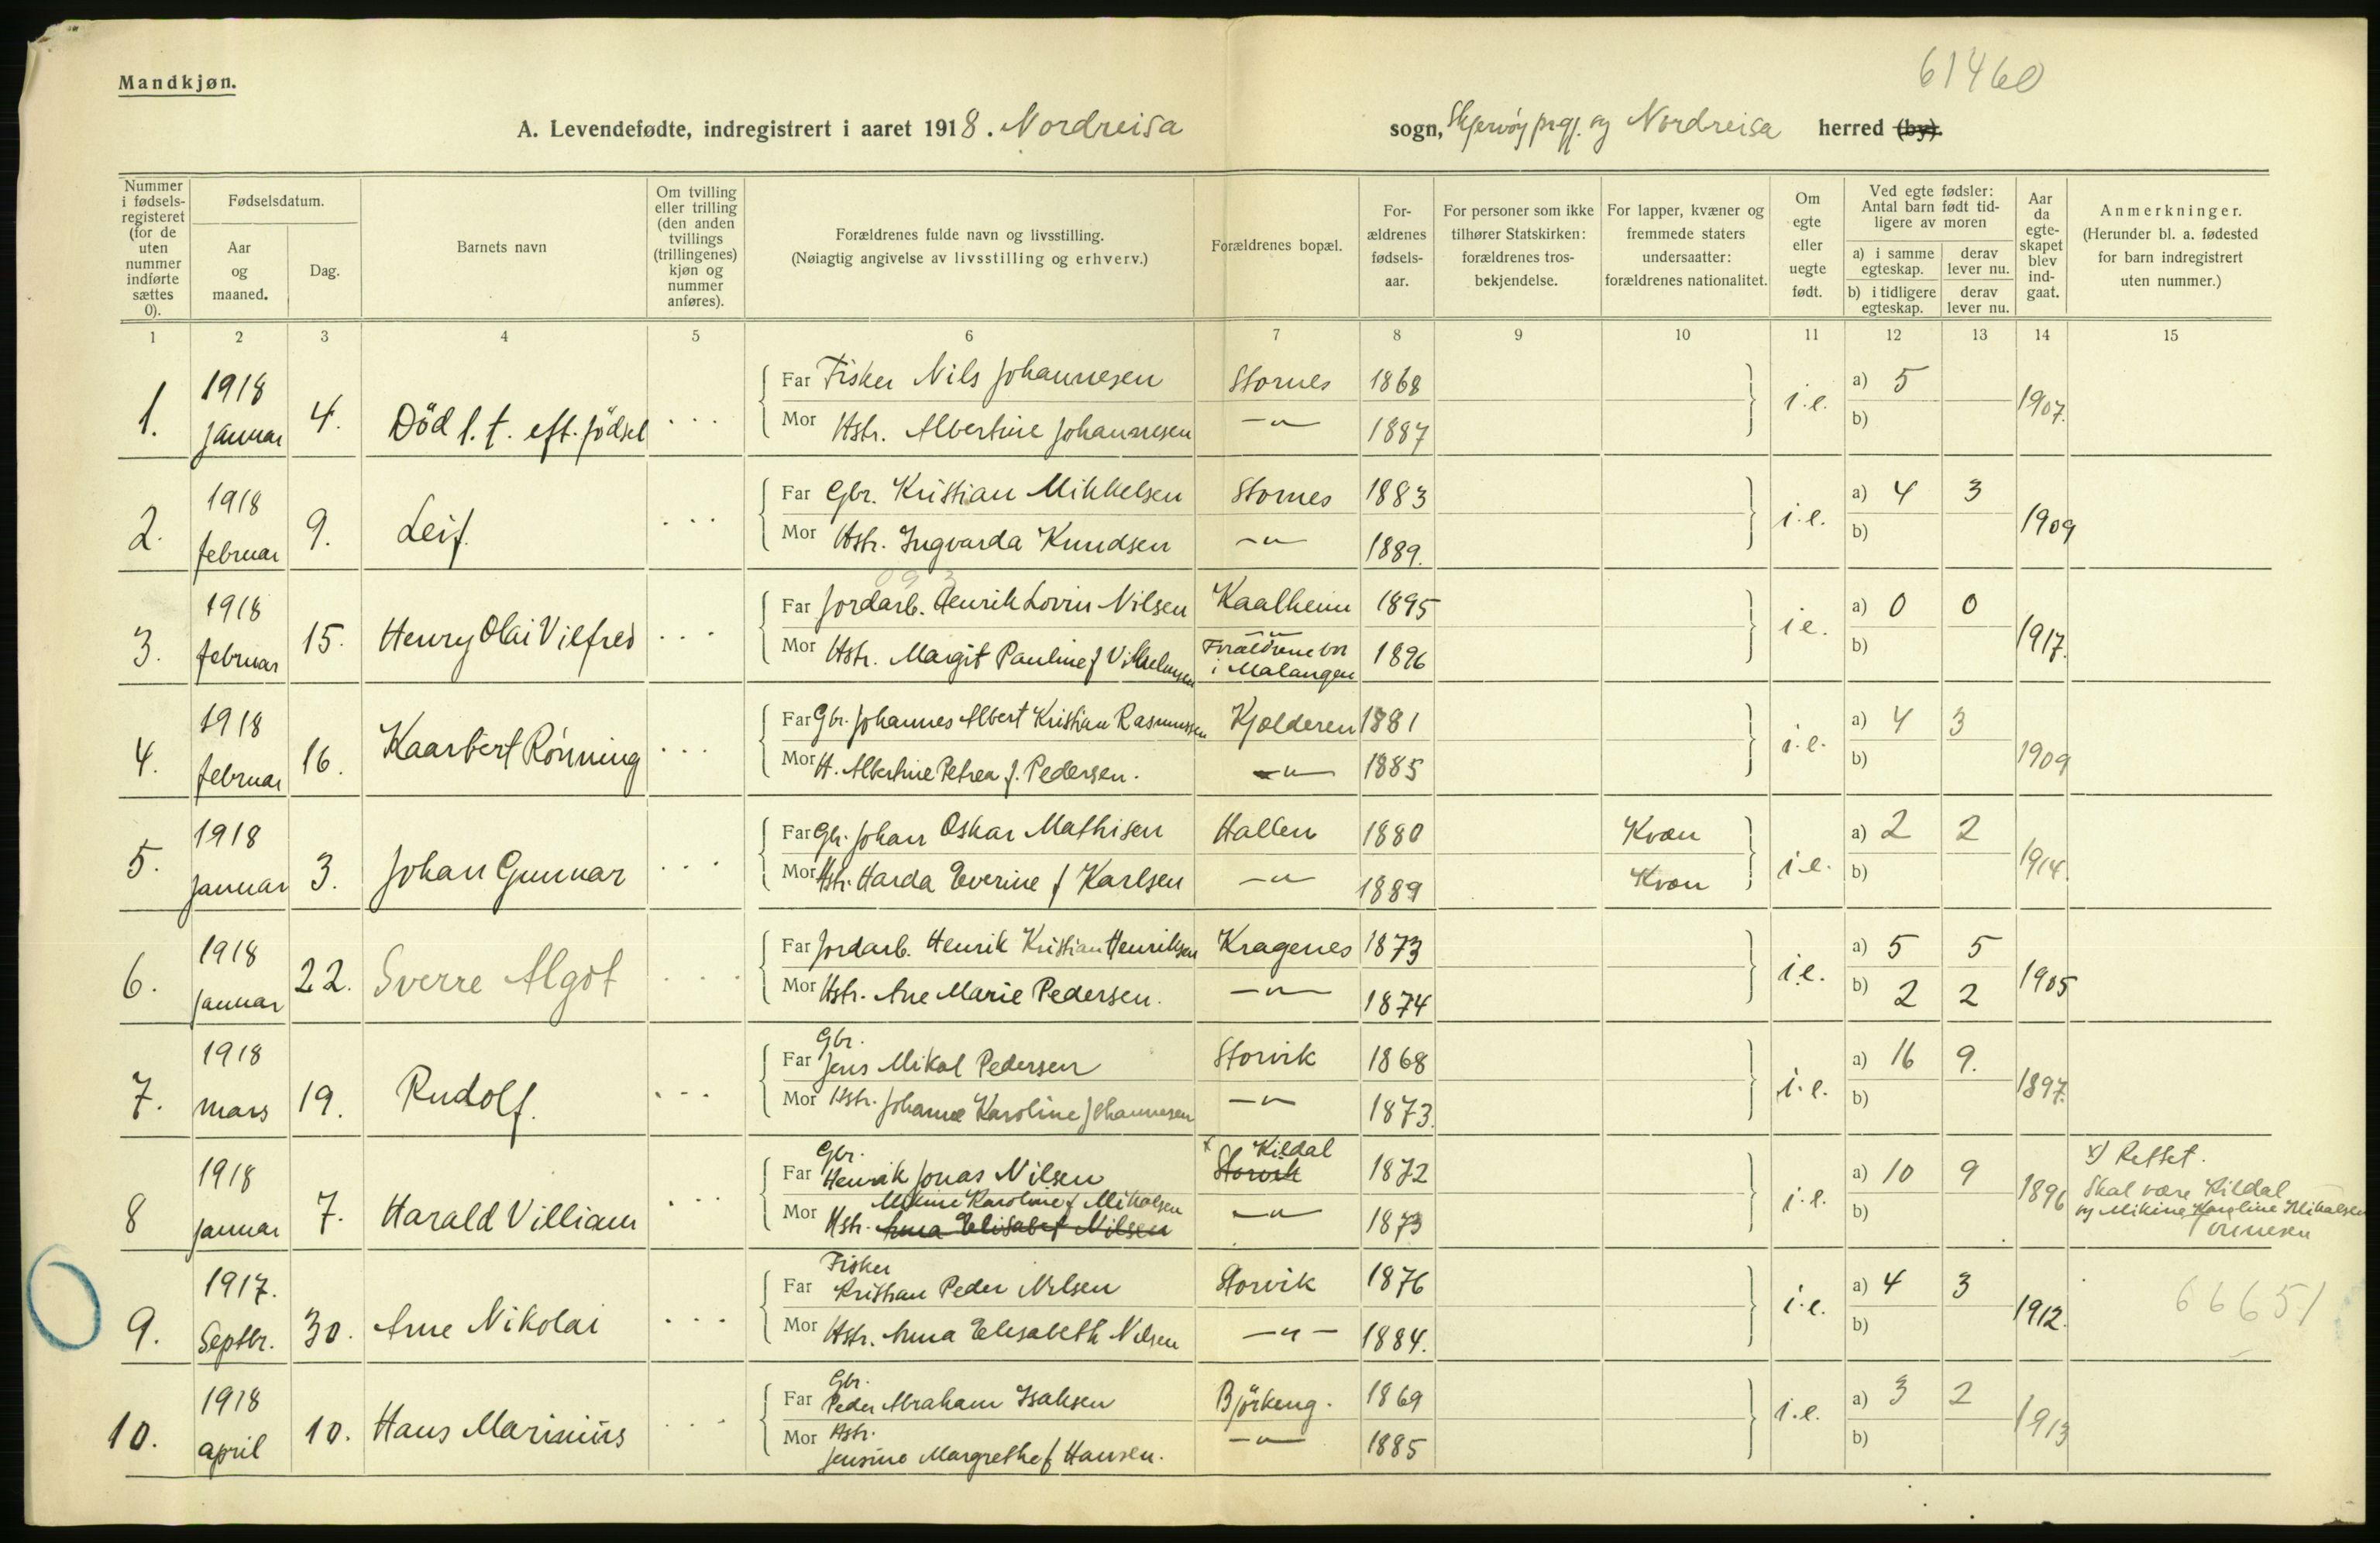 61460
Mandkjøn.
A. Levendefødte, indregistrert i aaret 1918. Nordreisa sogn, Skjervøy prgj. og Nordreisa herred (by).
Nummer i fødsels-registeret (for de uten nummer indførte sættes 0).
Fødselsdatum.
Aar og maaned.
Dag.
Barnets navn
Om tvilling eller trilling (den anden tvillings (trillingenes) kjøn og nummer anføres).
Forældrenes fulde navn og livsstilling.
(Nøiagtig angivelse av livsstilling og erhverv.)
Forældrenes bopæl.
For-ældrenes fødsels-aar.
For personer som ikke tilhører Statskirken: forældrenes tros-bekjendelse.
For lapper, kvæner og fremmede staters undersaatter: forældrenes nationalitet.
Om egte eller uegte født.
Ved egte fødsler: Antal barn født tid-ligere av moren
a) i samme egteskap.
derav lever nu.
b) i tidligere egteskap.
derav lever nu.
Aar da egte-skapet blev ind-gaat.
Anmerkninger.
(Herunder bl. a. fødested for barn indregistrert uten nummer.)
1 2 3 4 5 6 7 8 9 10 11 12 13 14 15
1. 1918 januar 4. Död l. t. eft. födsel . . .
Far Fisker Nils Johannesen Stornes 1868 i.e. a) 5 1907.
Mor Hstr. Albertine Johannesen —"— 1887 b)
2. 1918 februar 9. Leif. . . .
Far Gbr. Kristian Mikkelsen Stornes 1883 i.e. a) 4 3 1909
Mor Hstr. Ingvarda Knudsen —"— 1889. b)
093
3. 1918 februar 15. Henry Olai Vilfred . . .
Far Jordarb. Henrik Lovin Nilsen Kaalheim 1895 i e. a) 0 0 1917.
Mor Hstr. Margit Pauline f Vilhelmsen —"— Forældrene bor i Malangen 1896 b)
4. 1918 februar 16. Kaarbert Rönning . . .
Far Gbr. Johannes Albert Kristian Rasmussen Kjelderen 1881 i.e. a) 4 3 1909
Mor H. Albertine Petrea f. Pedersen. —"— 1885 b)
5. 1918 januar 3. Johan Gunnar . . .
Far Gbr. Johan Oskar Mathisen Hallen 1880 Kvæn i.e. a) 2 2 1914.
Mor Hstr. Harda Everine f Karlsen —"— 1889 Kvæn b)
6. 1918 januar 22. Sverre Algot . . .
Far Jordarb. Henrik Kristian Henriksen Kragenes 1873 i.e. a) 5 5 1905
Mor Hstr. Ane Marie Pedersen. —"— 1874 b) 2 2
7. 1918 mars 19. Rudolf. . . .
Far Gbr. Jens Mikal Pedersen Storvik 1868 i.e. a) 16 9. 1897.
Mor Hstr. Johanne Karoline Johannesen —"— 1873. b)
8 1918 januar 7. Harald Villiam . . .
Far Gbr. Henrik Jonas Nilsen x Kildal Storvik 1872 i.e. a) 10 9 1896 x) Rettet.
Mor Mikine Karoline f Mikalsen Hstr. Anna Elisabet Nilsen —"— 1873 b) Skal være Kildal
og Mikine Karoline Mikalsen
9. 1917. Septbr. 30. Arne Nikolai . . .
Far Fisker Kristian Peder Nilsen Storvik 1876 i.e. a) 4 3 1912. 66651
Mor Hstr. Anna Elisabeth Nilsen —"— 1884. b)
10. 1918 april 10. Hans Marinius . . .
Far Gbr. Peder Abraham Isaksen Björkeng. 1869 i.e. a) 3 2 1913
Mor Hstr. Jensine Margrethe f Hansen. —"— 1885 b)